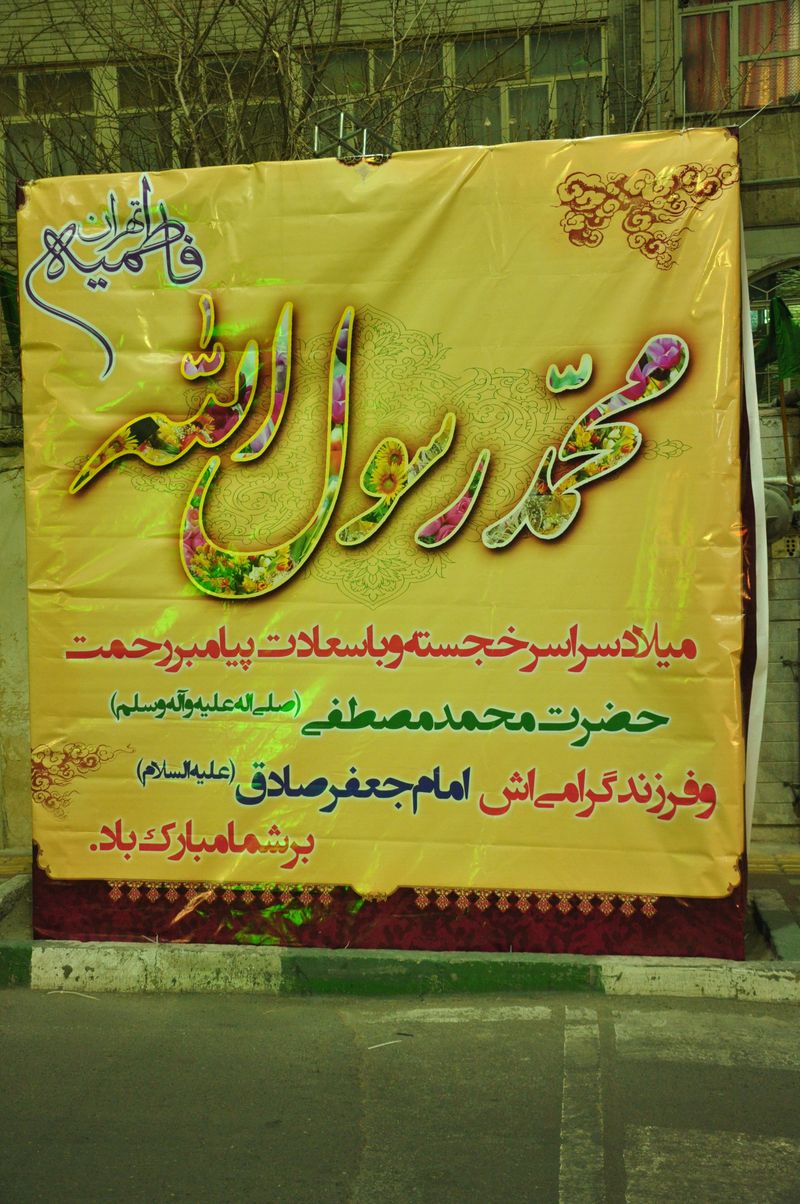 فاطمیه تهران
محمّد رسول الله
میلاد سراسر خجسته و با سعادت پیامبر رحمت
حضرت محمد مصطفی (صلی اله علیه و آله وسلم)
و فرزند گرامی اش امام جعفر صادق (علیه السلام)
بر شما مبارک باد.